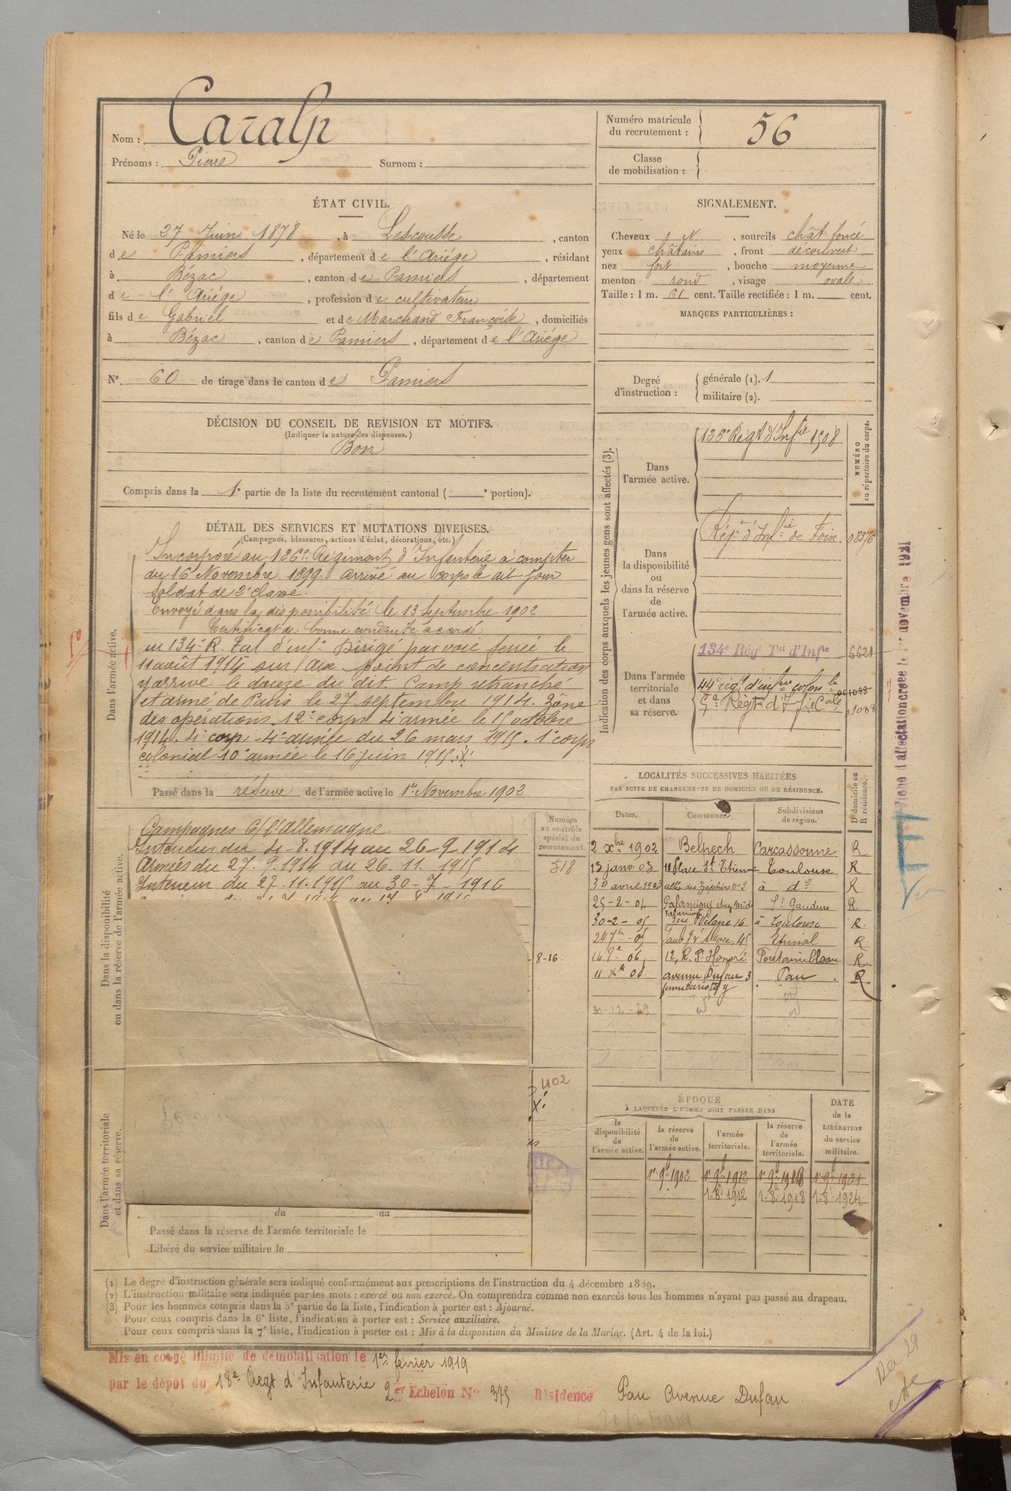 Nom : Caralp
Prénoms : Pierre Surnom :
Numéro matricule
du recrutement : 56
Classe
de mobilisation :
ÉTAT CIVIL.
Né le 27 Juin 1878, à Lescousse, canton
de Pamiers, département de l'Ariége, résidant
à Bézac, canton de Pamiers, département
de l'Ariége, profession de cultivateur
fils de Gabriel et de Marchand Françoise, domiciliés
à Bézac, canton de Pamiers, département de l'Ariége
N° 60 de tirage dans le canton de Pamiers
SIGNALEMENT.
Cheveux N, sourcils chât. foncé
yeux châtains, front découvert
nez fort, bouche moyenne
menton rond, visage ovale
Taille : 1 m. 61 cent. Taille rectifiée : 1 m. cent.
MARQUES PARTICULIÈRES :
Degré
d'instruction :
générale (1). 1
militaire (2).
DÉCISION DU CONSEIL DE REVISION ET MOTIFS.
(Indiquer la nature des dispenses.)
Bon
Compris dans la 1e partie de la liste du recrutement cantonal ( e portion).
DÉTAIL DES SERVICES ET MUTATIONS DIVERSES.
(Campagnes, blessures, actions d'éclat, décorations, etc.)
Dans l'armée active.
Incorporé au 126e Régiment d'Infanterie à compter
du 16 Novembre 1899. arrivé au corps le dit jour
soldat de 2e classe.
Envoyé dans la disponibilité le 13 Septembre 1902
Certificat de bonne conduite accordé
au 134e R. Tal d'inf. Dirigé par voie ferrée le
11 août 1914 sur point de concentration
y arrive le douze du dit Camp retranché
et armé de Paris le 27 septembre 1914. Zône
des opérations 12e corps 4e armée le 15 octobre
1914. 4e corps 4e armée du 26 mars 1915. 1er corps
colonial 10e armée le 16 juin 1915.
Passé dans la réserve de l'armée active le 1er Novembre 1902
Indication des corps auxquels les jeunes gens sont affectés (3).
NUMÉRO
au répertoire du corps.
Dans
l'armée active.
126e Régt d'Infie 1508
Dans
la disponibilité
ou
dans la réserve
de
l'armée active.
Régt d'Infie de Foix.
Dans l'armée
territoriale
et dans
sa réserve.
134e Régt Tal d'Infie 6621
44e régt d'infie colon.le
5e Régt d'Inf. Cale
LOCALITÉS SUCCESSIVES HABITÉES
PAR SUITE DE CHANGEMENTS DE DOMICILE OU DE RÉSIDENCE.
Dates. Communes. Subdivisions
de région. D. domicile ou
R. résidence.
2 Xbre 1902 Belpech Carcassonne R
13 janv 03 11 Place St Etienne Toulouse R
30 avril 1903 allée des Zéphirs n° 2 à do R
25-2-04 St Gaudens R.
30-2-05 16 à Toulouse R.
Epinal R
06 12, R. St Honoré Fontainebleau R
avenue Dufau 3 Pau R.
Numéro
au contrôle
spécial du
recrutement.
318
8-16
402
Dans la disponibilité
ou dans la réserve de l'armée active.
Campagnes C/ l'Allemagne
Intérieur du 4-8-1914 au 26-9-1914
Armées du 27-9-1914 au 26-11-1915
Intérieur du 27-11-1915 au 30-7-1916
Dans l'armée territoriale
et dans sa réserve.
du au
Passé dans la réserve de l'armée territoriale le
Libéré du service militaire le
ÉPOQUE
À LAQUELLE L'HOMME DOIT PASSER DANS
la
disponibilité
de
l'armée active.
la réserve
de
l'armée active.
l'armée
territoriale.
la réserve
de
l'armée
territoriale.
DATE
de la
LIBÉRATION
du service
militaire.
1er 9bre 1902 1er 9bre 1912 1er 9bre 1918
1.8bre 1912 1.8bre 1918 1.8bre 1924
(1) Le degré d'instruction générale sera indiqué conformément aux prescriptions de l'instruction du 4 décembre 1889.
(2) L'instruction militaire sera indiquée par les mots : exercé ou non exercé. On comprendra comme non exercés tous les hommes n'ayant pas passé au drapeau.
(3) Pour les hommes compris dans la 5e partie de la liste, l'indication à porter est : Ajourné.
Pour ceux compris dans la 6e liste, l'indication à porter est : Service auxiliaire.
Pour ceux compris dans la 7e liste, l'indication à porter est : Mis à la disposition du Ministre de la Marine. (Art. 4 de la loi.)
Mis en congé illimité de démobilisation le 1er février 1919
par le dépot du 18e Regt d'Infanterie 2er Echelon N° 375 Résidence Pau Avenue Dufau